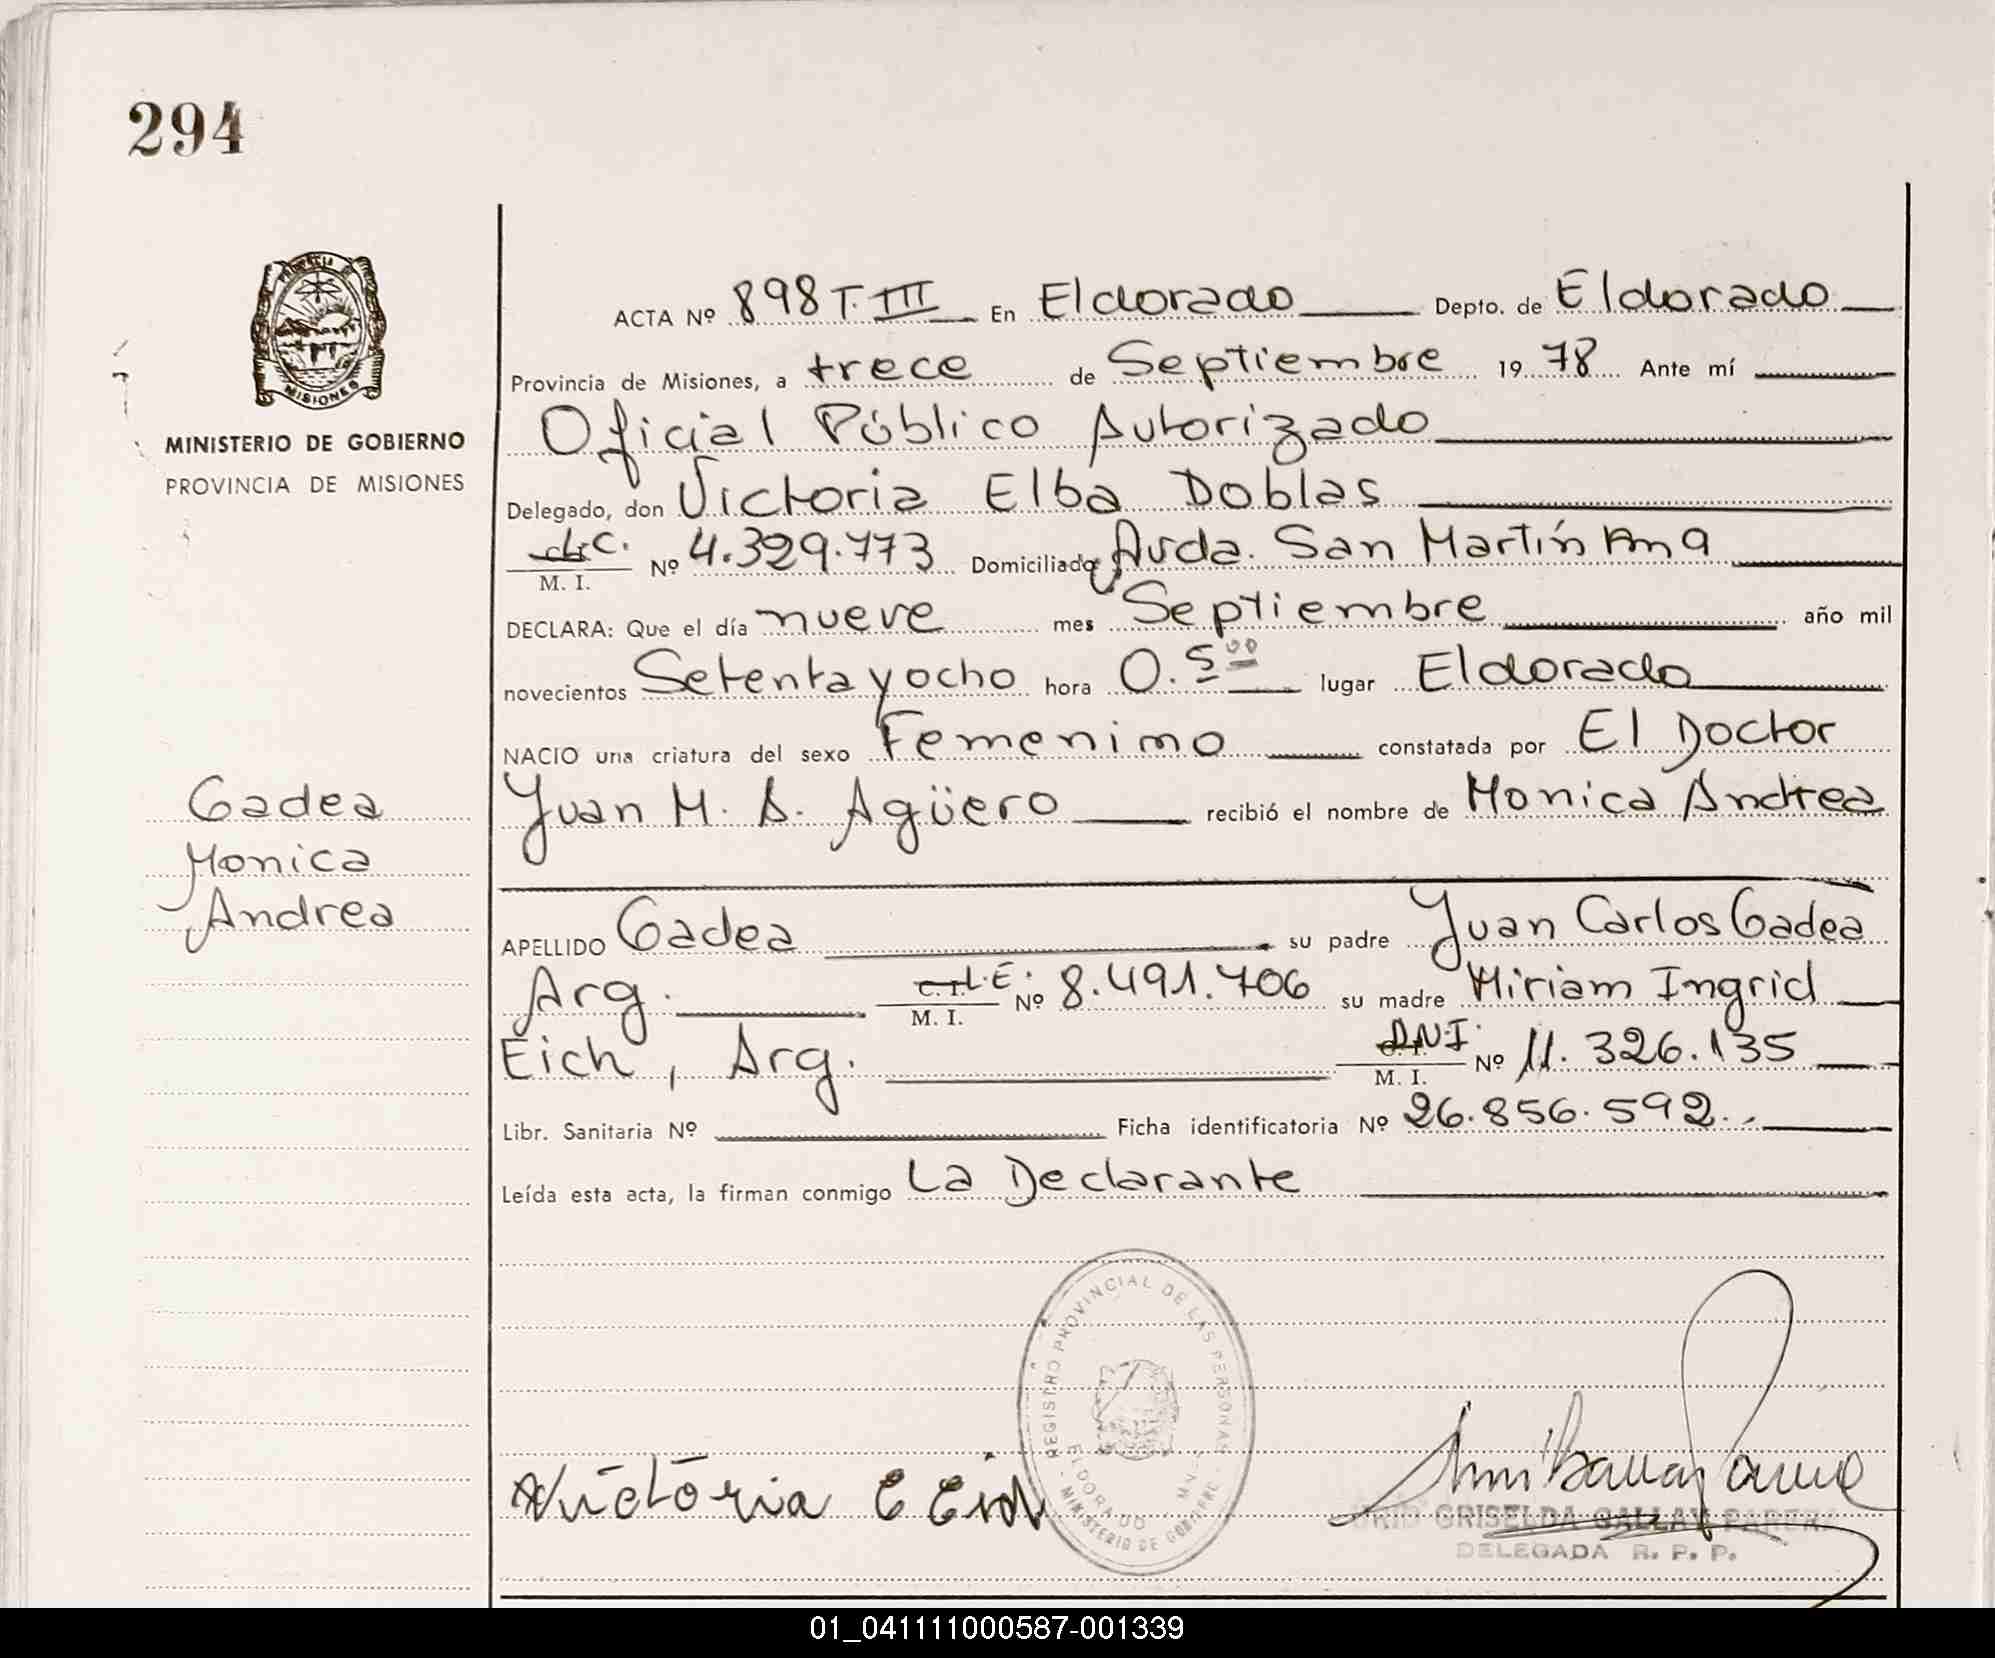 294
PROVINCIA DE
MISIONES
MINISTERIO DE GOBIERNO
PROVINCIA DE MISIONES
Gadea
Monica
Andrea
ACTA Nº 898 T. III En Eldorado Depto. de Eldorado
Provincia de Misiones, a trece de Septiembre 1978 Ante mí
Oficial Público Autorizado
Delegado, don Victoria Elba Doblas
L.C. M. I. Nº 4.329.773 Domiciliado Avda. San Martín Km 9
DECLARA: Que el día nueve mes Septiembre año mil
novecientos Setenta y ocho hora 0.5 00 lugar Eldorado
NACIO una criatura del sexo Femenino constatada por El Doctor
Juan M. A. Agüero recibió el nombre de Monica Andrea
APELLIDO Gadea su padre Juan Carlos Gadea
Arg. C.I. L.E. M. I. Nº 8.491.706 su madre Miriam Ingrid
Eich, Arg. D.N.I. M. I. Nº 11.326.135
Libr. Sanitaria Nº Ficha identificatoria Nº 26.856.592.
Leída esta acta, la firman conmigo La Declarante
REGISTRO PROVINCIAL DE LAS PERSONAS
ELDORADO
MINISTERIO DE GOBIERNO
Victoria
GRISELDA GALLAY PARERA
DELEGADA R. P. P.
01_041111000587-001339